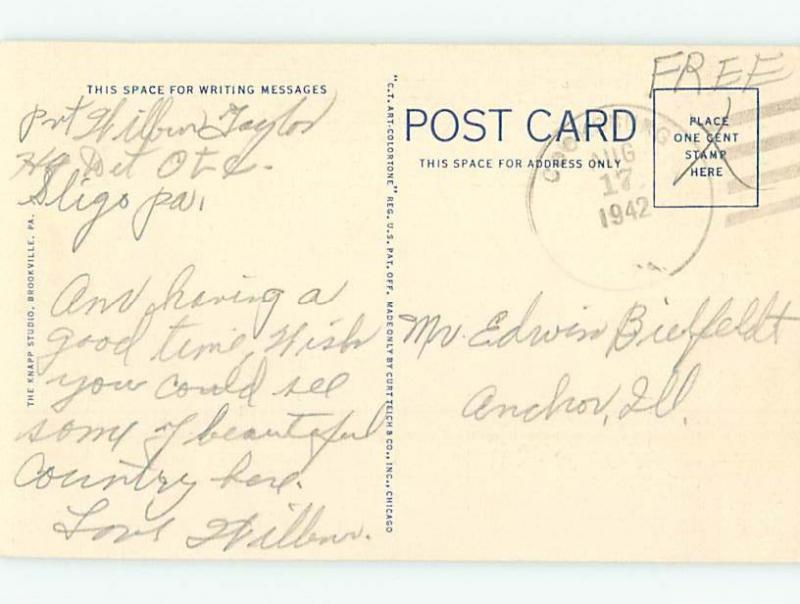 THIS SPACE FOR WRITING MESSAGES
Pvt Wilbur Taylor
Hq Det
Sligo Pa.
Am having a
good time, Wish
you could see
some of beautiful
Country here.
Love Wilbur.
THE KNAPP STUDIO, BROOKVILLE, PA.
"C.T. ART-COLORTONE" REG. U.S. PAT. OFF. MADE ONLY BY CURT TEICH & CO., INC., CHICAGO
FREE
POST CARD
THIS SPACE FOR ADDRESS ONLY
PLACE
ONE CENT
STAMP
HERE
AUG
17
1942
Mr. Edwin Bielfeldt
Anchor, Ill.